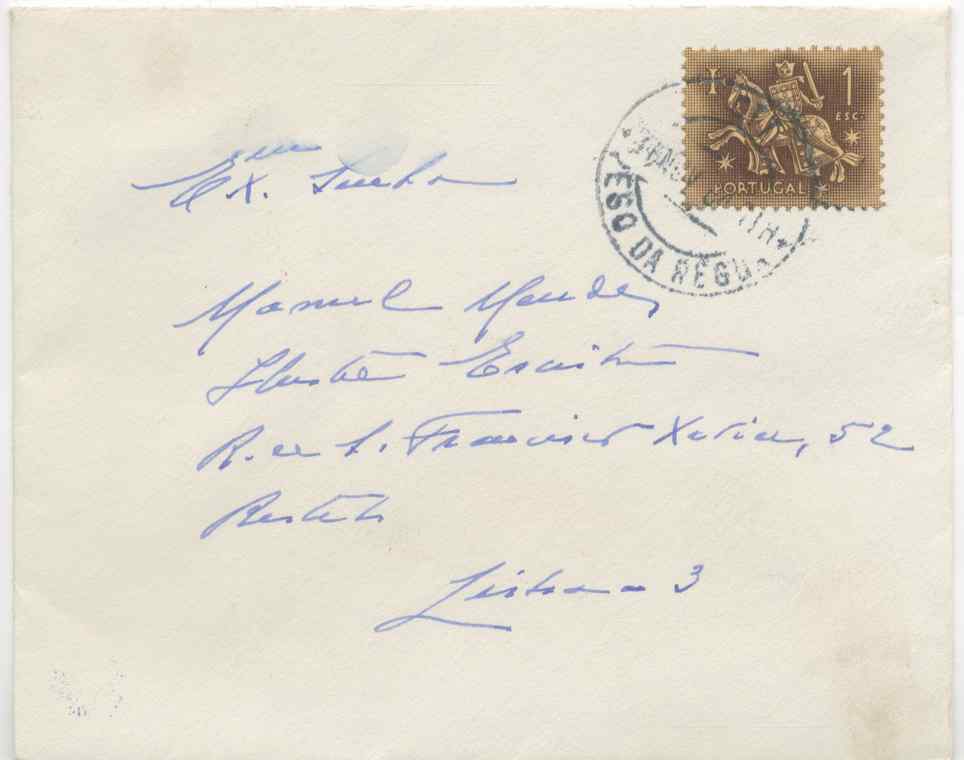 1 1
ESC.
PORTUGAL
PESO DA RÉGUA
Exmo. Senhor
Manuel Mendes
Ilustre Escritor
Rua S. Francisco Xavier, 52
Restelo
Lisboa - 3